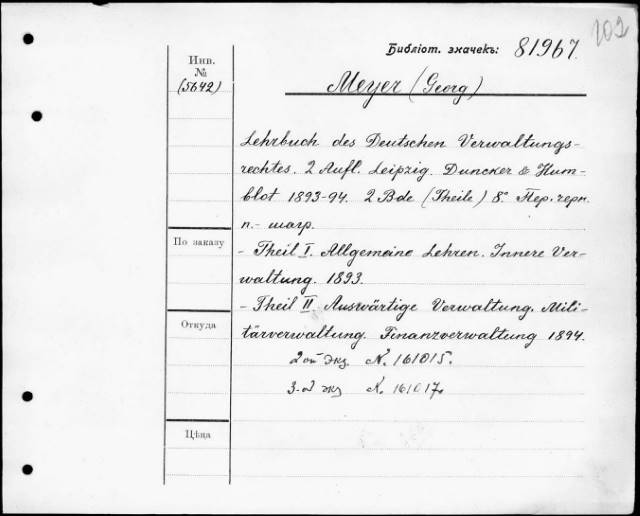 102
Библіот. значекъ: 81967.
Инв.
№
(5642)
Meyer (Georg)
Lehrbuch des Deutschen Verwaltungs-
rechtes. 2 Aufl. Leipzig. Duncker & Hum-
blot 1893-94. 2 Bde (Theile) 8° Пер. черн.
п.- шагр.
По заказу
- Theil I. Allgemeine Lehren. Innere Ver-
waltung. 1893.
- Theil II Auswärtige Verwaltung. Mili-
Откуда
tärverwaltung. Finanzverwaltung 1894.
2ой Экз. N. 161015.
3-й экз N. 161017.
Цѣна